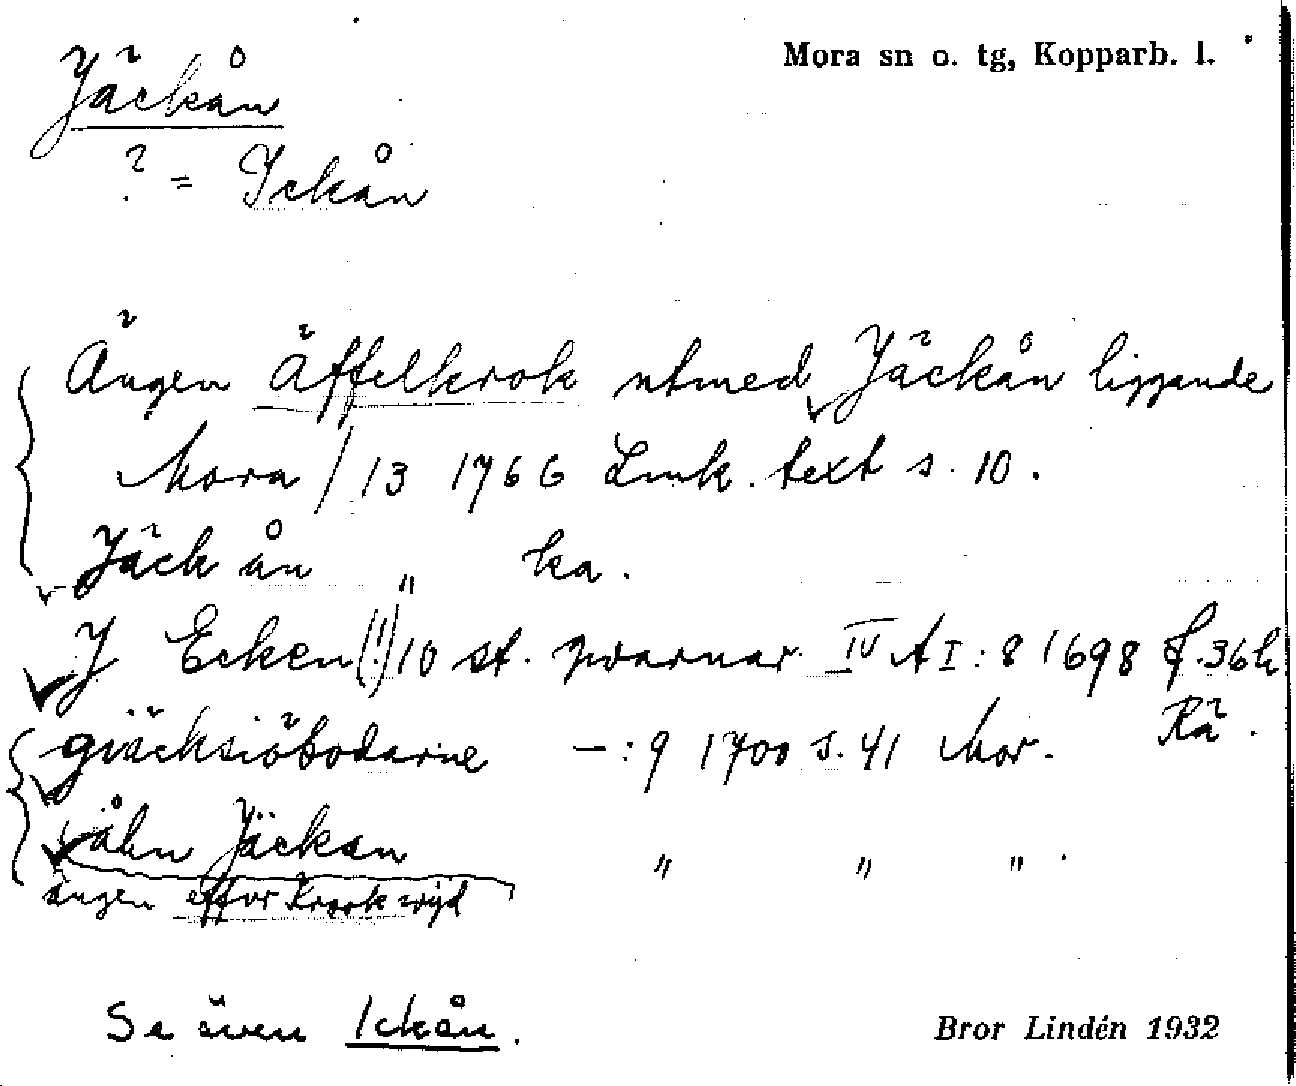 Mora sn o. tg, Kopparb. l.
Jäckån
? = Ickån
Ängen äffelkrok utmed Jäckån liggande
Mora / 13 1766 Lmk. text s. 10.
Jäck ån " ka.
J Ecken (!) 10 st. qvarnar IV A I: 8 1698 f. 36 h
Rä.
giäcksiöbodarne – : 9 1700 s. 41 Mor.
åhn Jäckan " " "
ängen effur Krook wijd
Se även Ickån.
Bror Lindén 1932